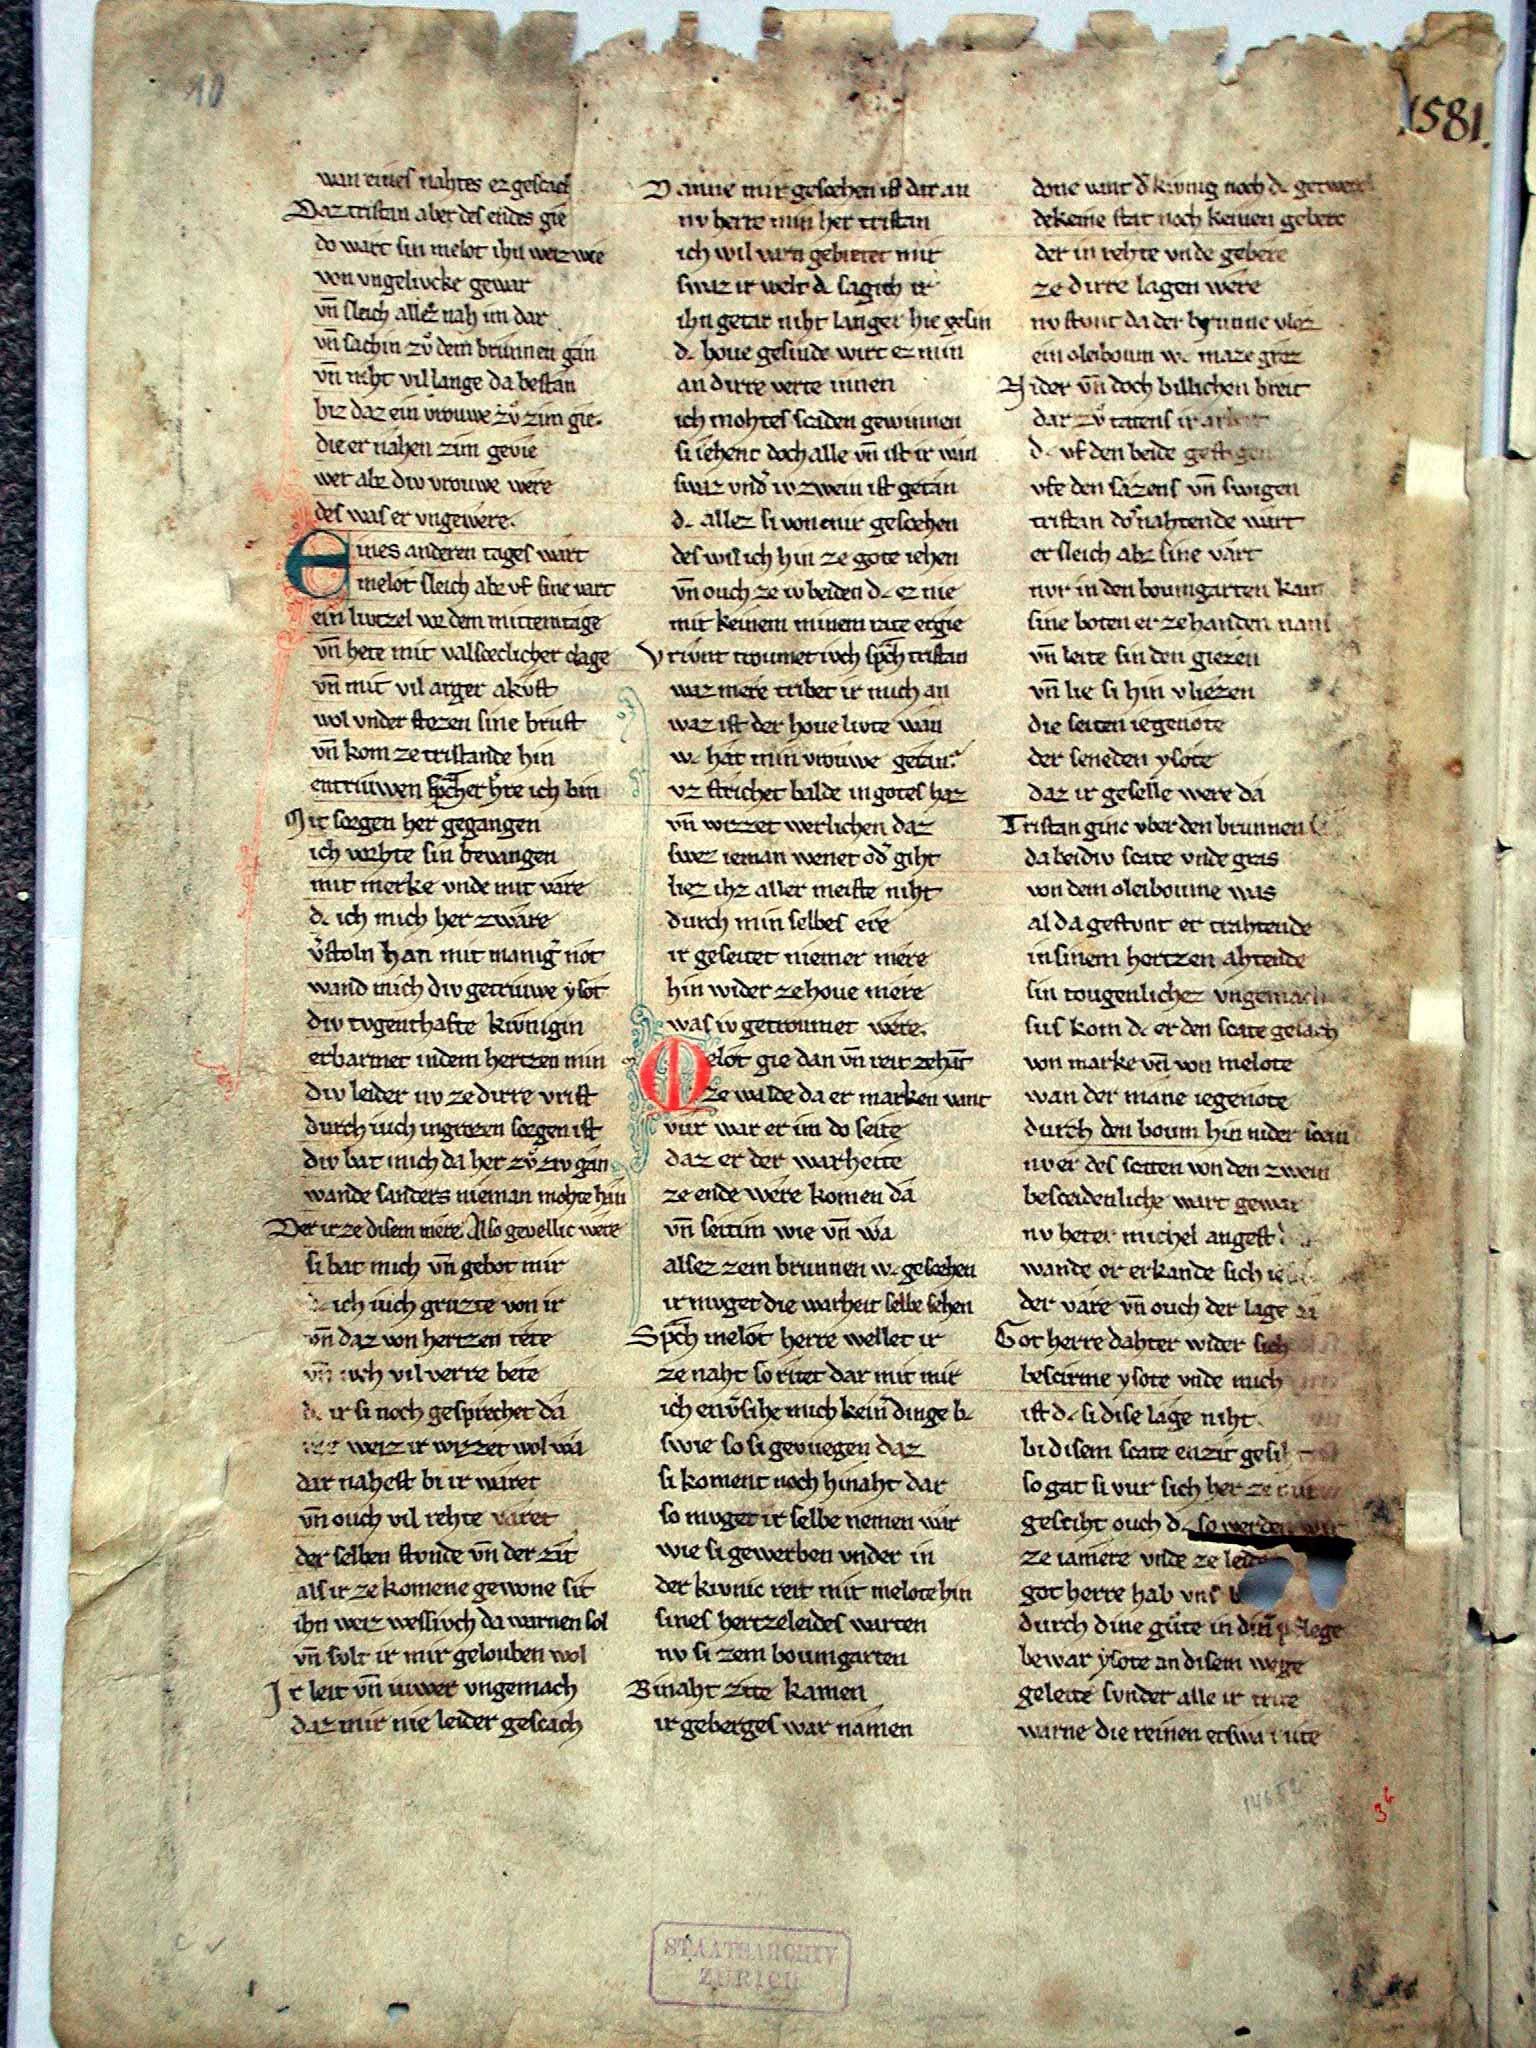 10
1581.
wan eines nahtes ez gescach
Daz tristan aber des endes gie
do wart sin melot ihn weiz wie
von vngelvcke gewar
vn̄ sleich allez nah im dar
vn̄ sach in zv̊ dem brunnen gan
vn̄ niht vil lange da bestan
biz daz ein vrouwe zv̊ zim gie.
die er nahen zim gevie
wer abz div vrouwe were
des was er vngewere.
Eines anderen tages wart
melot sleich abz vf sine vart
ein lvtzel vor dem mittemtage
vn̄ hete mit valscelicher clage
vn̄ mit vil arger akust
wol vnder stezen sine brust
vn̄ kom ze tristande hin
entriuwen sp̄ch er h̄re ich bin
Mit sorgen her gegangen
ich vorhte sin bevangen
mit merke vnde mit vare
d. ich mich her zware
v̄stoln han mit maniḡ not
wand mich div getriuwe ysot
div tvgenthafte kivnigin
erbarmet in dem hertzen min
div leider nv ze dirre vrist
durch iuch in grozen sorgen ist
div bat mich da her zv̊ ziv gan
wande sanders nieman mohte han
Der ir ze disem mere Also gevellic were
si bat mich vn̄ gebot mir
d. ich iuch gruzte von ir
vn̄ daz von hertzen tete
vn̄ iuch vil verre bete
d. ir si noch gesprechet da
weiz ir wizzet wol wa
dar nahest bi ir waret
vn̄ ouch vil rehte varet
der selben stvnde vn̄ der zit
als ir ze komene gewone sit
ihn weiz wes si vch da warnen sol
vn̄ solt ir mir gelouben wol
Ir leit vn̄ iuwer vngemach
daz mir nie leider gescach
Danne mir gescehen ist dar an
nv herre min her tristan
ich wil varn gebietet mir
swaz ir welt d. sagich ir
ihn getar niht langer hie gesin
d. houe gesinde wirt ez min
an dirre verte innen
ich mohtes scaden gewinnen
si iehent doch alle vn̄ ist ir wan
swaz vnd̄ iv zwein ist getan
d. allez si von mir gescehen
des wil ich hin ze gote iehen
vn̄ ouch ze iv beiden d. ez nie
mit keinem minem rate ergie
Vrivnt troumet ivch sp̄ch tristan
waz mere tribet ir mich an
waz ist der houe livte wan
w. hat min vrouwe getan.
vz strichet balde in gotes haz
vn̄ wizzet werlichen daz
swez ieman wenet od̄ giht
liez ihz aller meiste niht
durch min selbes ere
ir geseitet niemer mere
hin wider ze houe mere
was iv getroumet were.
Melot gie dan vn̄ reit zehāt
ze walde da er marken vant
vur war er im do seite
daz er der warheite
ze ende were komen da
vn̄ seitim wie vn̄ wa
alsez zem brunnen w. gescehen
ir mvget die warheit selbe sehen
Sp̄ch melot herre wellet ir
ze naht so ritet dar mit mir
ich env̄sihe mich kein̄ dinge b.
swie so si gevuegen daz
si koment noch hinaht dar
so mvget ir selbe nemen war
wie si gewerben vnder in
der kivnic reit mit melote hin
sines hertzeleides warten
nv si zem boumgarten
Binaht zite kamen
ir geberges war namen
done vant d̄ kivnig noch d. getwerc
dekeine stat noch keinen geberc
der in rehte vnde gebere
ze dirre lagen were
nv stvnt da der brunne vloz
ein oleiboum w. maze groz
Nider vn̄ doch billichen breit
dar zv̊ tatens ir arbeit
d. vf den beide gestigen
vfe den sazens vn̄ swigen
tristan do nahtende wart
er sleich abz sine vart
nvr in den boumgarten kam
sine boten er ze handen nam
vn̄ leite si in den giezen
vn̄ lie si hin vliezen
die seiten iegenote
der seneden ysote
daz ir geselle were da
Tristan ginc vber den brunnen
da beidiv scate vnde gras
von dem oleiboume was
al da gestvnt er trahtende
in sinem hertzen ahtende
sin tougenlichez vngemach
sus kom d. er den scate gesach
von marke vn̄ von melote
wan der mane iegenote
durch den boum hin nider scein
nv er des scaten von den zwein
bescidenliche wart gewar
nv heter michel angest
wande er erkande sich
der vare vn̄ ouch der lage
Got herre dahter wider sich
bescirme ysote vnde mich
ist d. si dise lage niht
bi disem scate enzit gesiht
so gat si vur sich her ze
gesciht ouch d. so werden wir
ze iamere vnde ze leide
got herre hab vns
durch dine gv̊te in din̄ pflege
bewar ysote an disem wege
geleite svnder alle ir trite
warne die reinen etswa mite
3 b
STAATSARCHIV
ZÜRICH